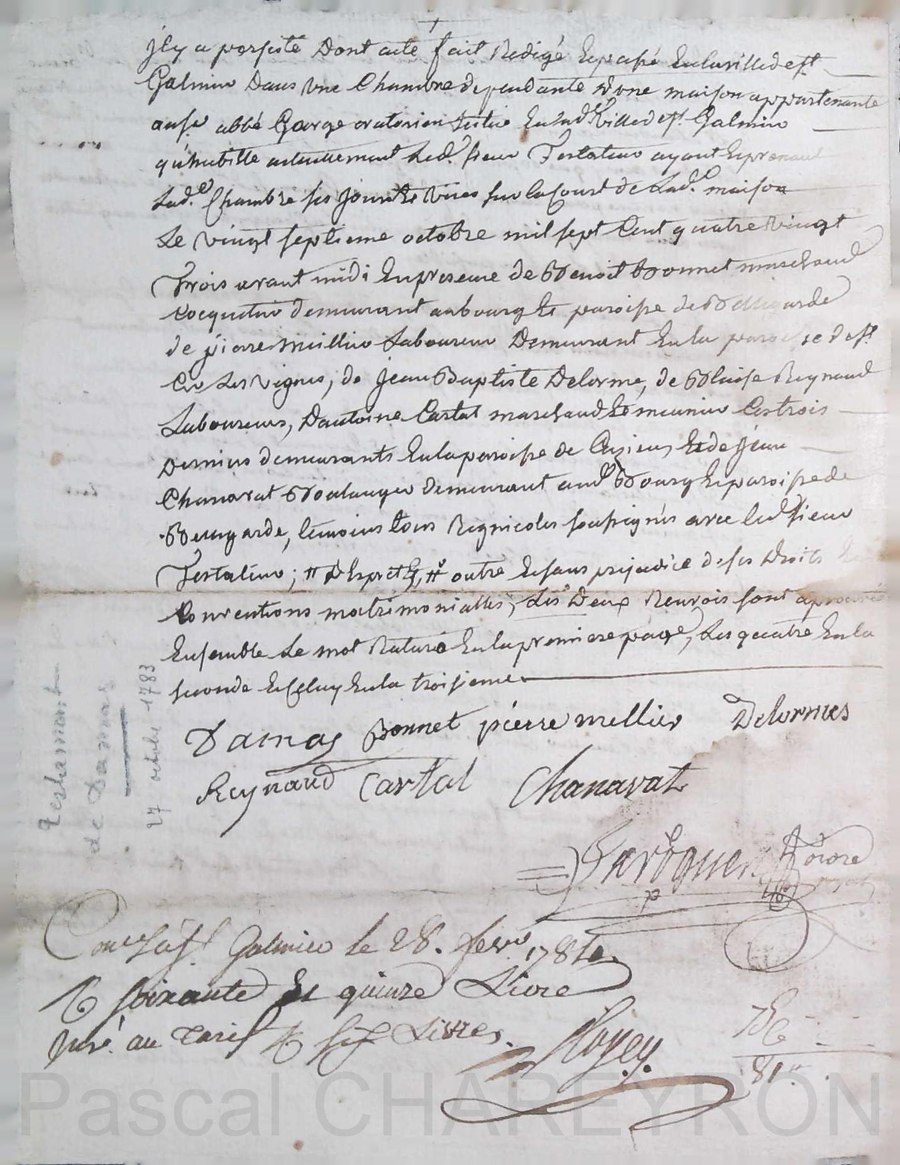 il y a persisté Dont acte fait Redigé et passé En la ville de st
Galmier Dans une Chambre dependante d'une maison appartenante
au sr abbé George oratorien scitué En lad. Ville de st. Galmier
qu'habitte actuellement led. sieur Testateur ayant et prenant
Lad.e Chambre ses jours et vües sur la Court de Lad.e maison
Le vingt septieme octobre mil sept Cent quatre vingt
Trois avant midi En presence de Benoit Bonnet marchand
demeurant au bourg Et paroisse de Bellegarde
de pierre meillier Laboureur Demeurant En la paroisse de st
Cir Les Vignes, de Jean Baptiste Delorme, de Blaise Reynaud
Laboureurs, D'antoine Cartal marchand Et meunier Ces trois
Derniers demeurants En la paroisse de Et de Jean
Chanavat Boulanger demeurant aud. Bourg Et paroisse de
Bellegarde, temoins tous Regnicoles soussignés avec led. sieur
Testateur; outre Et sans prejudice de ses Droits Et
Conventions matrimonialles, Les Deux Renvois sont aprouvés
Ensemble Le mot Raturé En la premiere page, Les quatre En la
seconde Et Celuy En la troisieme.
Damas Bonnet pierre mellier Delormes
Reynaud Cartal Chanavat
Conlé à st Galmier le 28. fevr. 1784
R soixante Et quinze Livre
au tarif R six Livres.
75
81
Testament
de Damas
27 octobre 1783
Pascal CHAREYRON